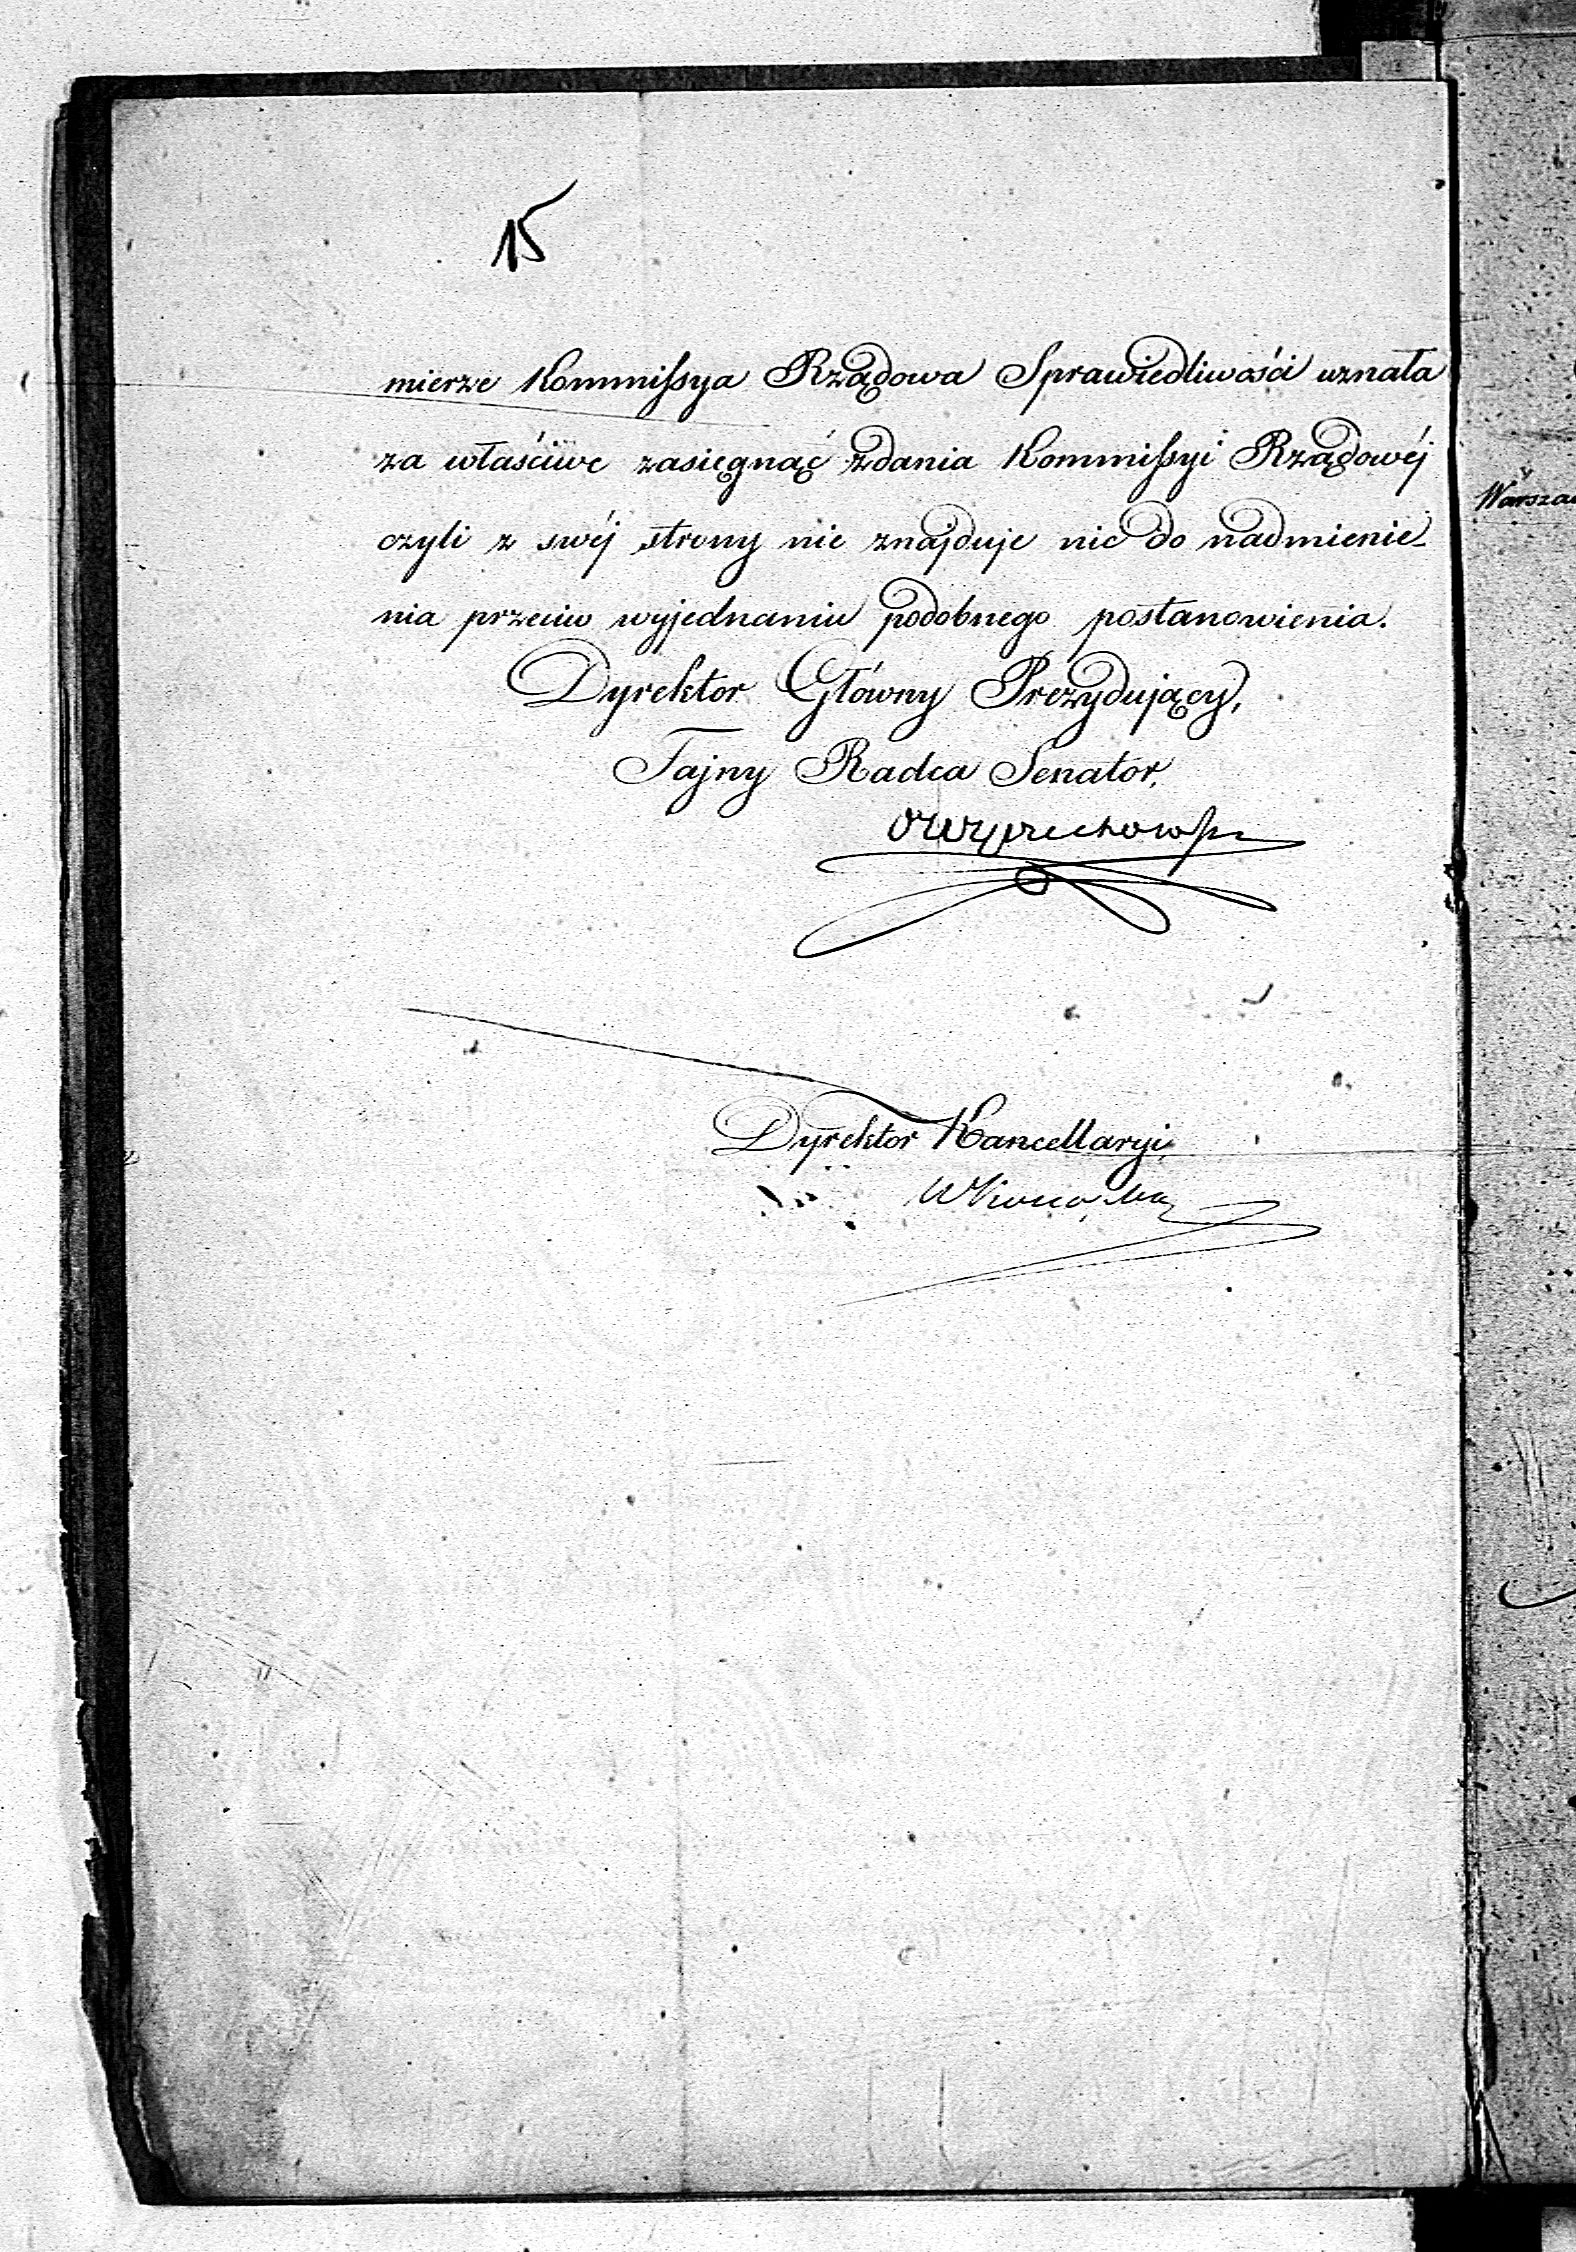 15
mierze Kommissya Rządowa Sprawiedliwości uznała
za właściwe zasięgnąć zdania Kommissyi Rządowéj
czyli z swéj strony nie znajduje nic do nadmienie-
nia przeciw wyjednaniu podobnego postanowienia.
Dyrektor Główny Prezydujący,
Tajny Radca Senator,
Dyrektor Kancellaryi,